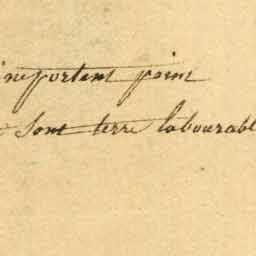 important point
sont terre labourabl